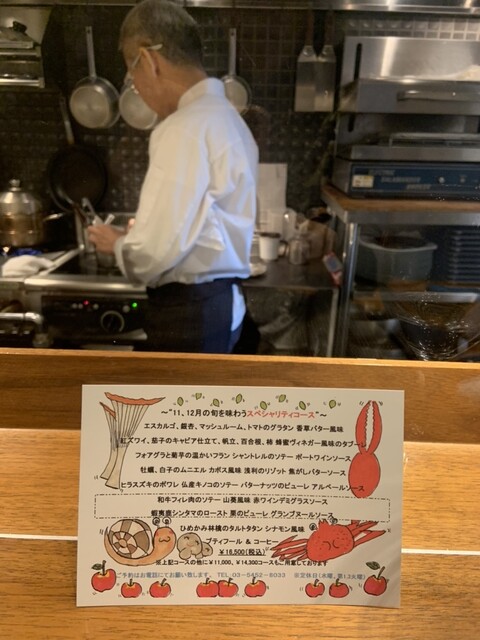 ～"11、12月の旬を味わうスペシャリティコース"～
エスカルゴ、銀杏、マッシュルーム、トマトのグラタン 香草バター風味
紅ズワイ、茄子のキャビア仕立て、帆立、百合根、柿 蜂蜜ヴィネガー風味のタブーレ
フォアグラと菊芋の温かいフラン シャントレルのソテー ポートワインソース
牡蠣、白子のムニエル カボス風味 浅利のリゾット 焦がしバターソース
ヒラスズキのポワレ 仏産キノコのソテー バターナッツのピューレ アルベールソース
和牛フィレ肉のソテー 山葵風味 赤ワインデミグラスソース
蝦夷鹿シンタマのロースト 栗のピューレ グランヴヌールソース
ひめかみ林檎のタルトタタン シナモン風味
プティフール ＆ コーヒー
￥18,500(税込)
※上記コースの他に￥11,000、￥14,300コースもご用意しております
ご予約はお電話にてお願い致します。 TEL 03-5452-8033 ※定休日(水曜、第1,3火曜)